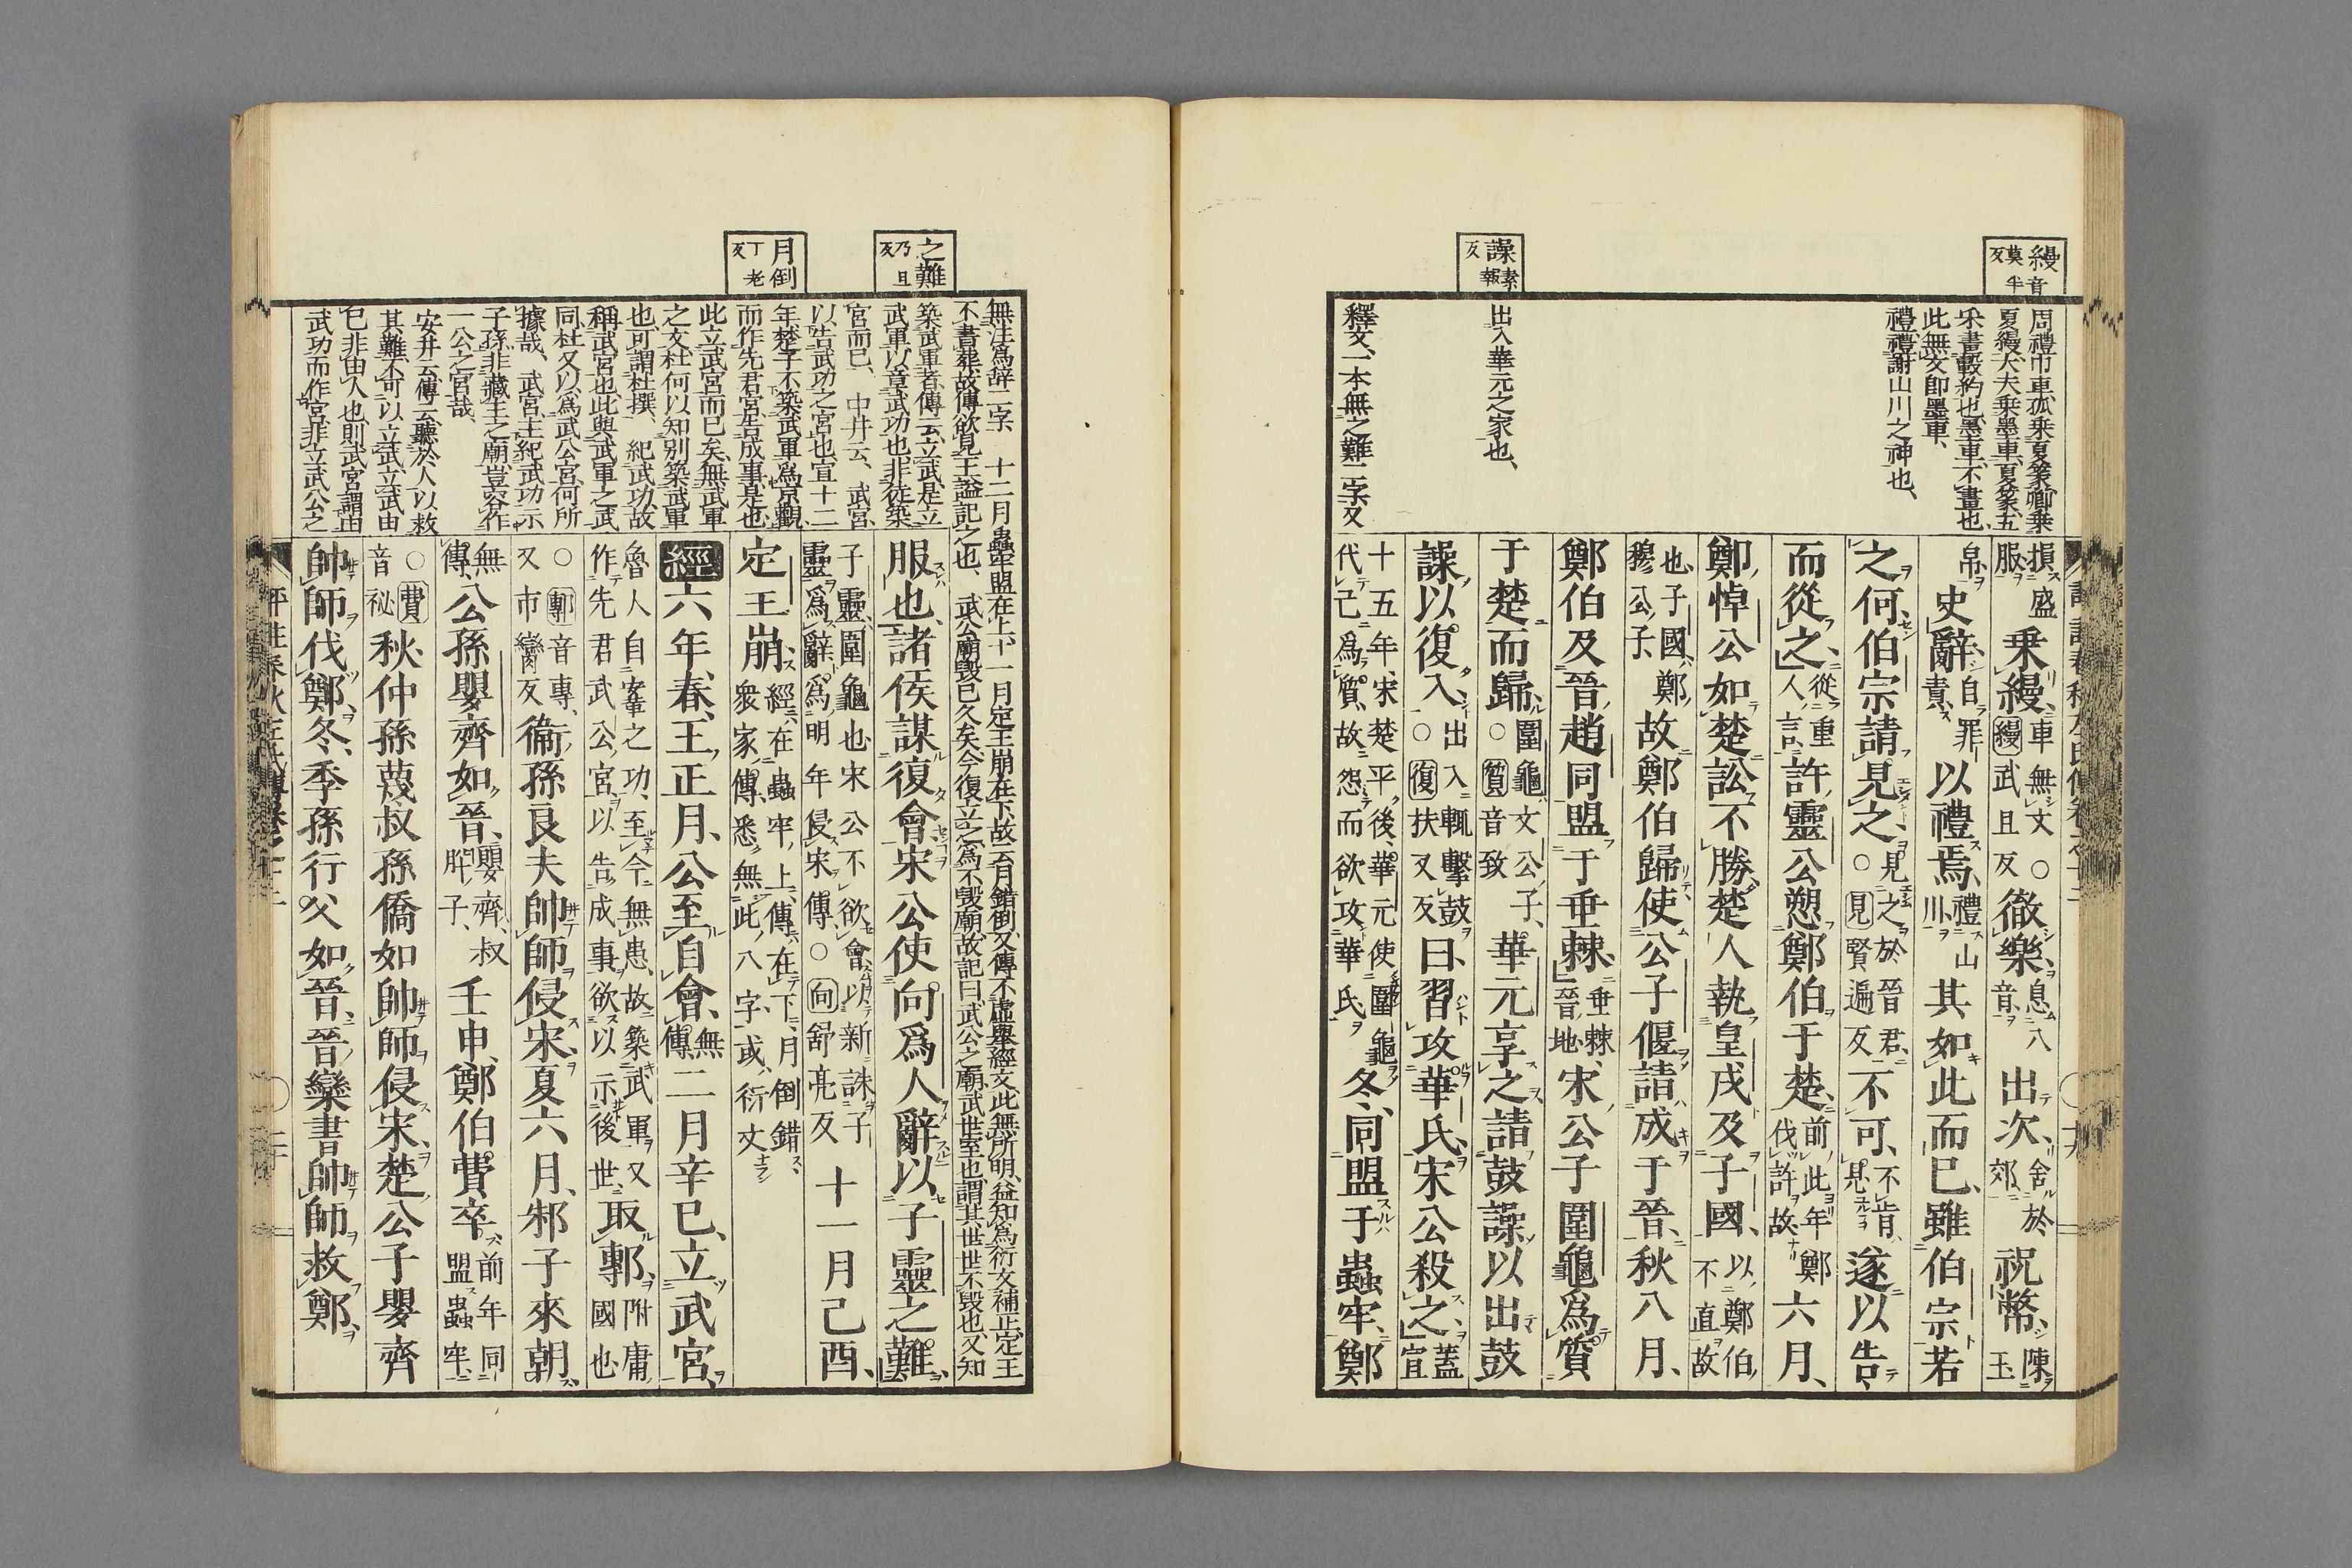 縵音
莫半
反
譟素
報
反
周禮巾車孤乗夏篆卿乗
夏縵大夫乗墨車夏篆五
采畫轂約也墨車不畫也
此無文卽墨車、
禮禮謝山川之神也、
出入華元之家也、
釋文一本無之難二字又
損盛服乗縵、車無文○縵武且反徹樂、息八音出次、舍於郊祝幣、陳玉
帛史辭、自罪責以禮焉、禮山川其如此而已、雖伯宗若
之何、伯宗請見之、見之於晉君○見賢遍反不可、不肯見遂以告
而從之、從重人言許靈公愬鄭伯于楚、前此年鄭伐許故六月、
鄭悼公如楚訟、不勝、楚人執皇戌及子國、以鄭伯不直故
也子國鄭穆公子故鄭伯歸使公子偃請成于晉、秋八月、
鄭伯及晉趙同盟于垂棘、垂棘晉地宋公子圍龜爲質
于楚而歸、圍龜文公子○質音致華元享之、請鼓譟以出鼓
譟以復入、出入輒擊鼓○復扶又反曰、習攻華氏、宋公殺之、蓋宣
十五年宋楚平後華元使圍龜代己爲質、故怨而欲攻華氏冬、同盟于蟲牢、鄭
之難
乃且
反
月倒
丁老
反
無注爲辭二字　十二月蟲牢盟在上十一月定王崩在下故云月錯倒又傳不虛舉經文此無所明益知爲衍文補正定王
不書葬故傳欲見王謚記之也、武公廟毀已久矣今復立之爲不毀廟故記曰武公之廟武世室也謂其世世不毀也又知
築武軍者傳云立武是立
武軍以章武功也非徒築
宮而已、中井云、武宮、
以告武功之宮也宣十二
年楚子不築武軍爲京觀
而作先君宮告成事是也
此立武宮而已矣無武軍
之文杜何以知別築武軍
也可謂杜撰、紀武功故
稱武宮也此與武軍之武
同杜又以爲武公宮何所
據哉、武宮主紀武功示
子孫非藏主之廟豈容作
一公之宮哉、
安井云傳云聽於人以救
其難不可以立武立武由
己非由人也則武宮謂由
武功而作宮非立武公之
服也、諸侯謀復會宋公使向爲人辭以子靈之難、
子靈圍龜也宋公不欲會以新誅子靈爲辭爲明年侵宋傳○向舒亮反十一月己酉、
定王崩、經在蟲牢上傳在下月倒錯衆家傳悉無此八字或衍文
經六年、春、王、正月、公至自會、無傳二月辛巳、立武宮、
魯人自鞌之功至今無患故築武軍又作先君武公宮以告成事欲以示後世取鄟、附庸國也
○鄟音專、又市臠反衞孫良夫帥師侵宋、夏六月、邾子來朝、
無傳、公孫嬰齊如晉、嬰齊叔肸子、壬申、鄭伯費卒、前年同盟蟲牢、
○費音祕秋、仲孫蔑叔孫僑如帥師侵宋、楚公子嬰齊
帥師伐鄭、冬、季孫行父如晉、晉欒書帥師救鄭、